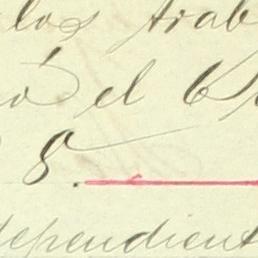 los trab
ó el
8.
dependient